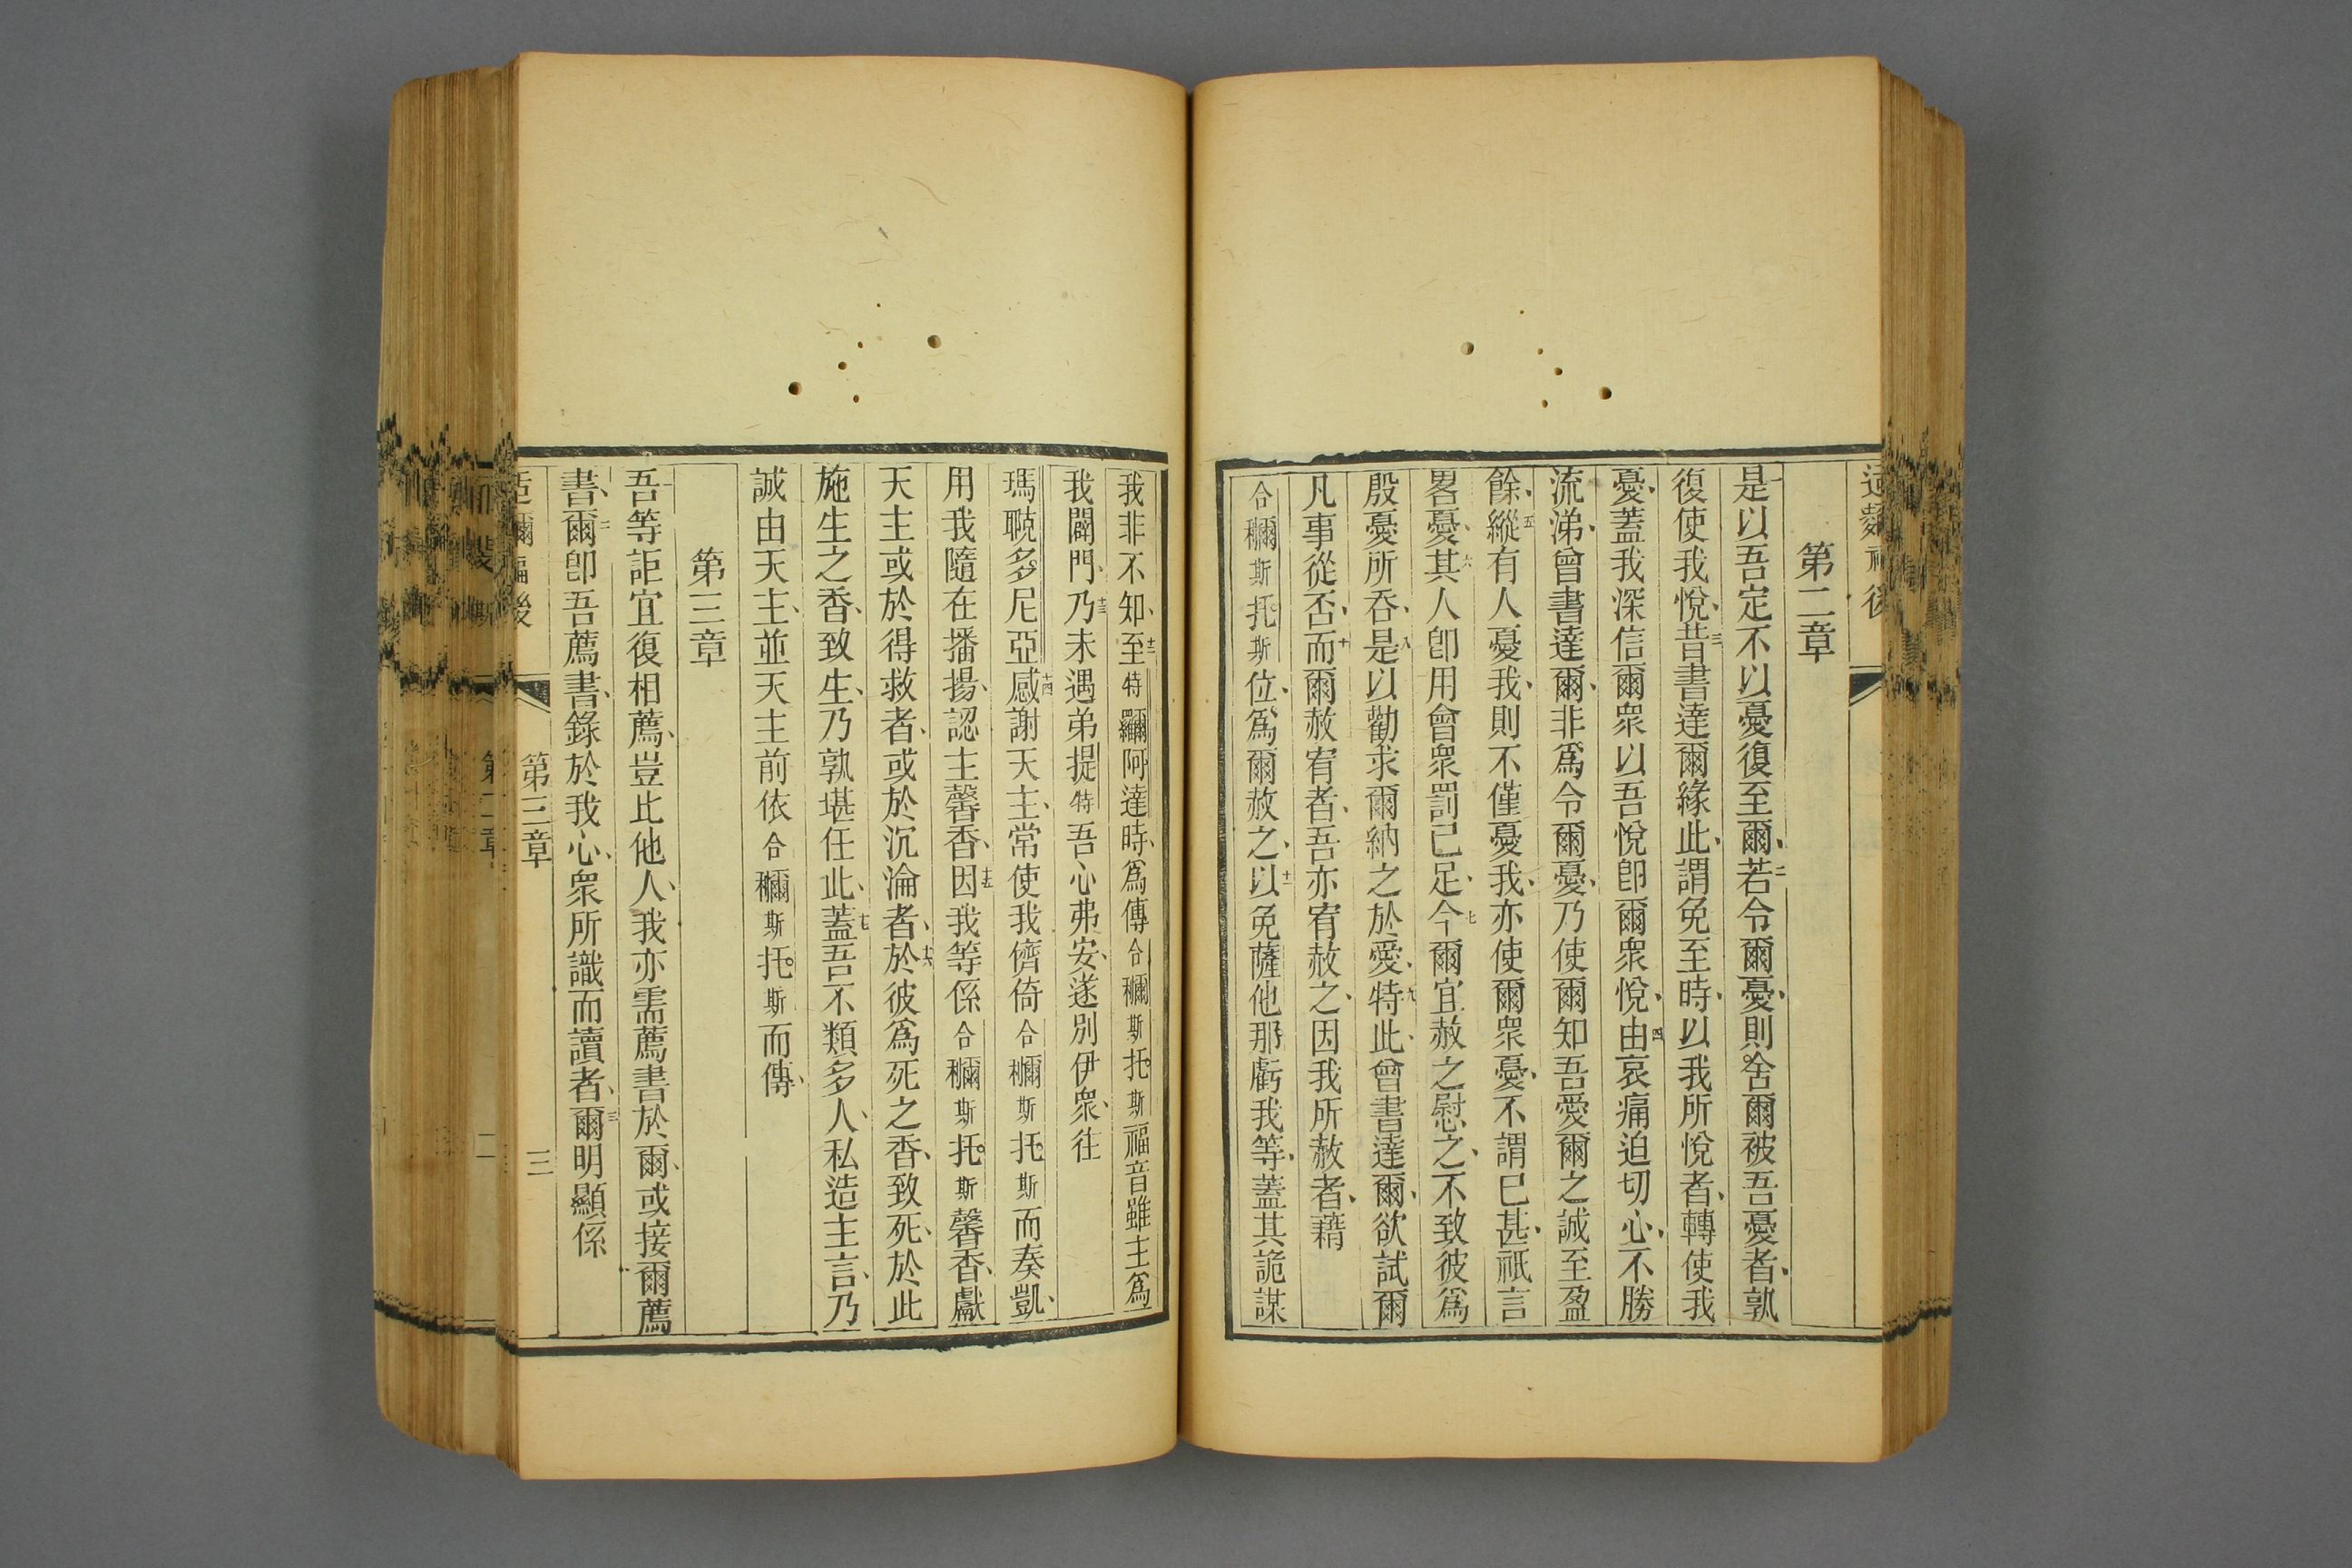 第二章
是一以吾定不以憂復至爾、二若令爾憂、則舍爾被吾憂者、孰
復使我悅、三昔書達爾緣此、謂免至時、以我所悅者、轉使我
憂、蓋我深信爾衆以吾悅卽爾衆悅、四由哀痛迫切心、不勝
流涕、曾書達爾、非爲令爾憂、乃使爾知吾愛爾之誠至盈
餘、五縱有人憂我、則不僅憂我、亦使爾衆憂、不謂已甚、祇言
畧憂、六其人卽用會衆罰已足、七今爾宜赦之慰之、不致彼爲
殷憂所吞、八是以勸求爾納之於愛、九特此、曾書達爾、欲試爾
凡事從否、十而爾赦宥者、吾亦宥赦之、因我所赦者、藉
合𥠖斯托斯位、爲爾赦之、十一以免薩他那虧我等、蓋其詭謀
我非不知、十二至特囉阿達時、爲傳合𥠖斯托斯福音雖主爲
我闢門、十三乃未遇弟提特吾心弗安、遂別伊衆、往
瑪聴多尼亞十四感謝天主、常使我儕倚合𥠖斯托斯而奏凱、
用我隨在播揚、認主馨香、十五因我等係合𥠖斯托斯馨香、獻
天主或於得救者、或於沉淪者、十六於彼爲死之香、致死、於此
施生之香、致生、乃孰堪任此、十七蓋吾不類多人、私造主言、乃
誠由天主、並天主前依合𥠖斯托斯而傳、
第三章
吾一等詎宜復相薦、豈比他人、我亦需薦書於爾、或接爾薦
書、二爾卽吾薦書、錄於我心、衆所識而讀者、三爾明顯係
後
第三章
三